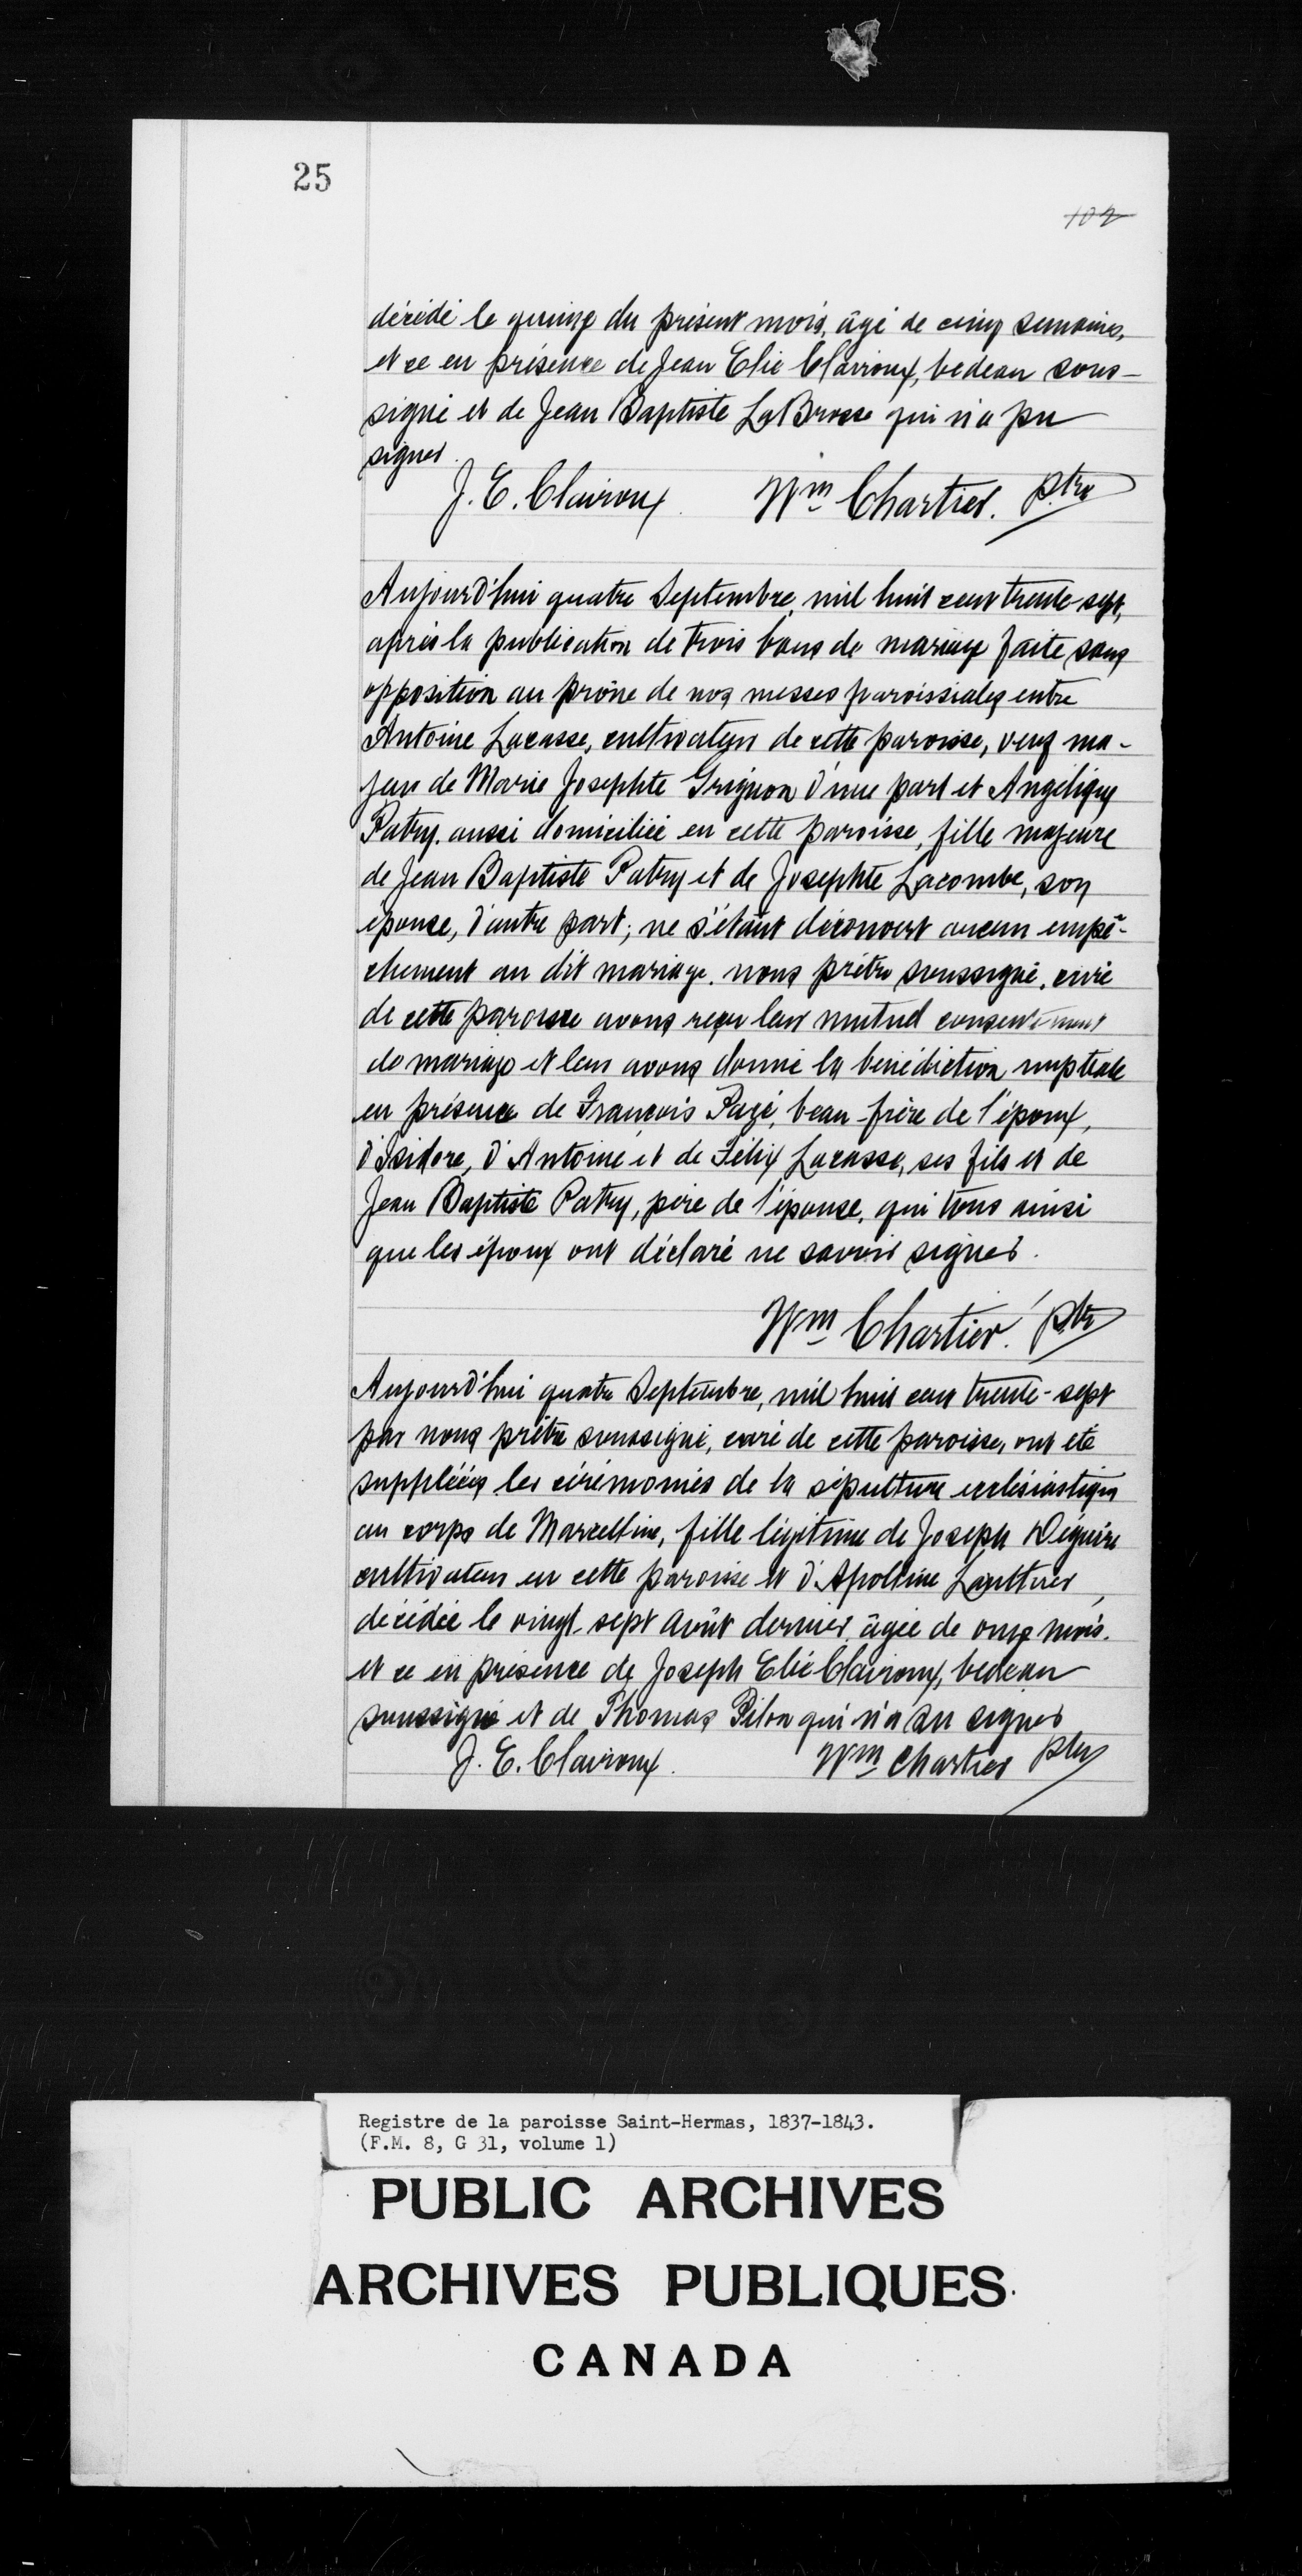 25
102
décédé le quinze du présent mois, âgé de cinq semaines,
et ce en présence de Jean Elie Clairoux, bedeau sous-
signé et de Jean Baptiste LaBrosse qui n'a pu
signer.
J. E. Clairoux. Wm Chartier. ptre
Aujourd'hui quatre Septembre, mil huit cent trente-sept,
après la publication de trois bans de mariage faite sans
opposition au prône de nos messes paroissiales entre
Antoine Lacasse, cultivateur de cette paroisse, veuf ma-
jeur de Marie Josephte Grignon d'une part et Angélique
Patry, aussi domiciliée en cette paroisse, fille majeure
de Jean Baptiste Patry et de Josephte Lacombe, son
épouse, d'autre part; ne s'étant découvert aucun empê-
chement au dit mariage, nous prêtre soussigné, curé
de cette paroisse avons reçu leur mutuel consentement
de mariage et leur avons donné la bénédiction nuptiale
en présence de François Pagé, beau-frère de l'époux,
d'Isidore, d'Antoine et de Félix Lacasse, ses fils et de
Jean Baptiste Patry, père de l'épouse, qui tous ainsi
que les époux ont déclaré ne savoir signer.
Wm Chartier. ptr
Aujourd'hui quatre Septembre, mil huit cent trente-sept
par nous prêtre soussigné, curé de cette paroisse, ont été
suppléées les cérémonies de la sépulture ecclésiastique
au corps de Marcelline, fille légitime de Joseph Déguire
cultivateur en cette paroisse et d'Apolline
décédée le vingt-sept Août dernier, âgée de onze mois,
et ce en présence de Joseph Elie Clairoux, bedeau
soussigné et de Thomas Pilon qui n'a su signer
J. E. Clairoux. Wm Chartier ptre
Registre de la paroisse Saint-Hermas, 1837-1843.
(F.M. 8, G 31, volume 1)
PUBLIC ARCHIVES
ARCHIVES PUBLIQUES
CANADA